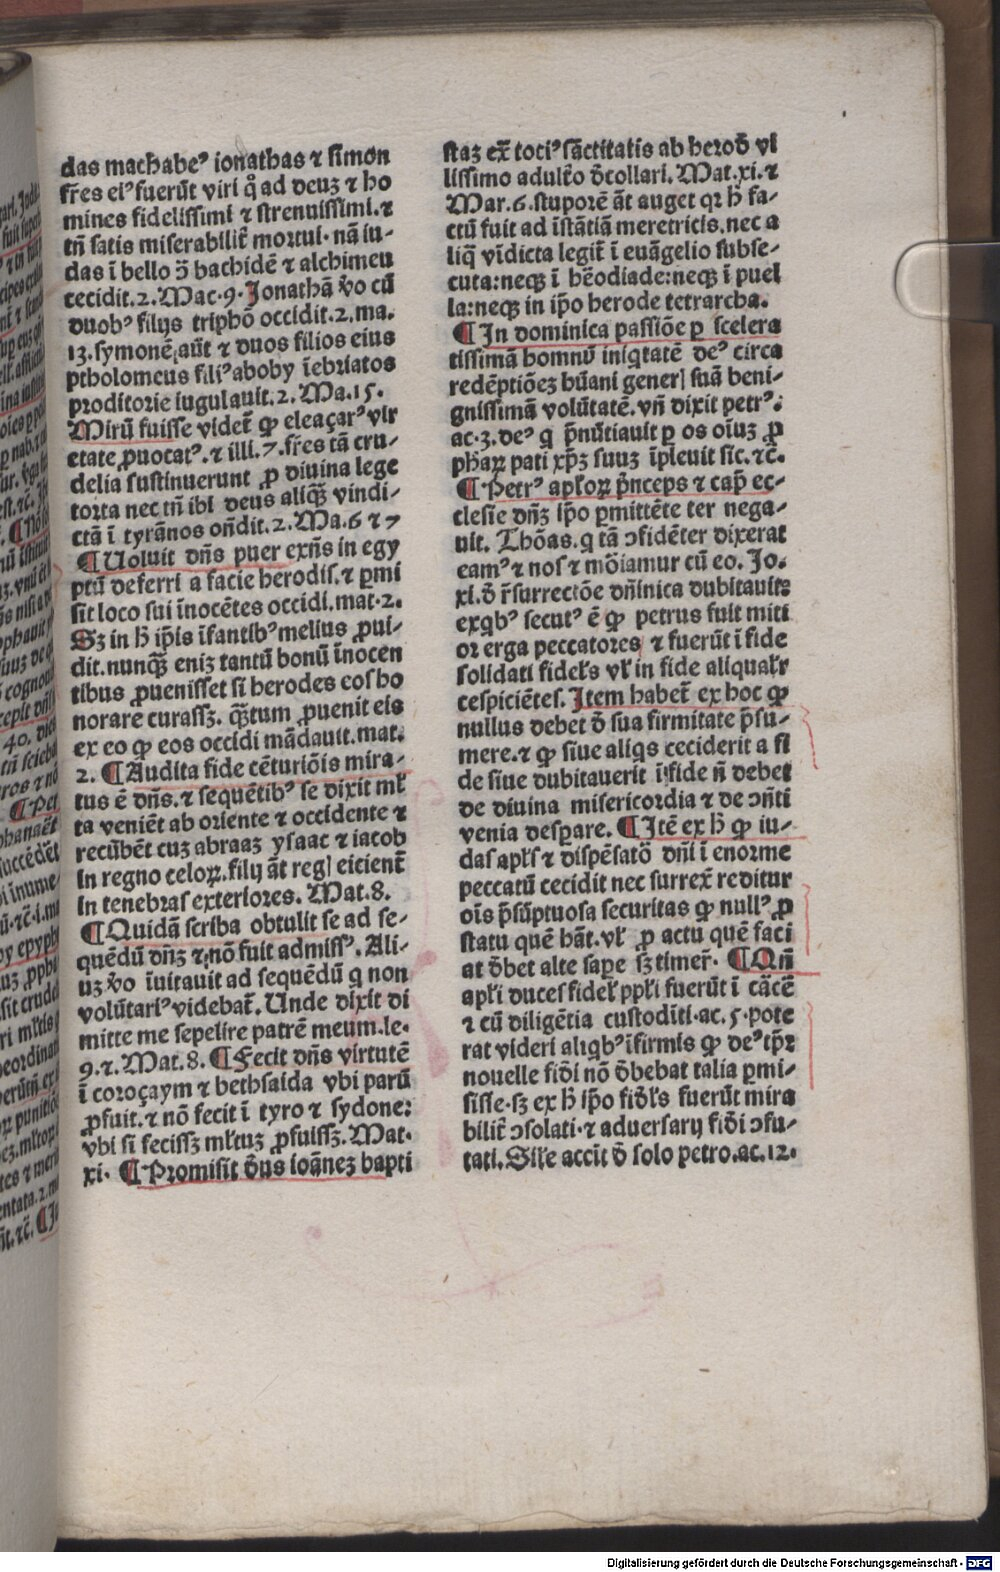 das machabeꝰ ionathas ⁊ simon
fr̄es eiꝰ fuerūt viri q̇ ad deuȝ ⁊ ho
mines fidelissimi ⁊ strenuissimi.⁊
tn̄ satis miserabilit̄ mortui. nā iu-
das ī bello ↄ̄ bachidē ⁊ alchimeu
cecidit.2.Mac.9. Jonathā v̄o cū
duobꝰ filijs triphō occidit.2.ma.
13.symonē aūt ⁊ duos filios eius
ptholomeus filiꝰ aboby īebriatos
proditorie iugulauit.2.Ma.15.
Mirū fuisse videt̄ ꝙ eleaçarꝰ vir
etate ꝓuocatꝰ.⁊ illi.7.fr̄es tā cru-
delia sustinuerunt ꝓ diuina lege
torta nec tn̄ ibi deus aliq̄ȝ vindi-
ctā ī tyrānos on̄dit.2.Ma.6 ⁊ 7
¶ Uoluit dn̄s puer exn̄s in egy
ptū deferri a facie herodis.⁊ ꝑmi
sit loco sui īnocētes occidi.mat.2.
Sȝ in h̄ ip̄is īfantibꝰ melius ꝓui-
dit.nunq̄ȝ eniȝ tantū bonū īnocen
tibus ꝓuenisset si herodes eos ho
norare curassȝ. q̄ȝtum ꝓuenit eis
ex eo ꝙ eos occidi mādauit.mat.
2. ¶ Audita fide cēturiōis mira-
tus ē dn̄s.⁊ sequētibꝰ se dixit ml̄
ta veniēt ab oriente ⁊ occidente ⁊
recūbēt cuȝ abraaȝ ysaac ⁊ iacob
in regno celoꝝ.filij āt regl eicient̄
in tenebras exteriores. Mat.8.
¶ Quidā scriba obtulit se ad se-
quēdū dn̄ȝ ⁊ nō fuit admissꝰ. Ali-
uȝ v̄o īuitauit ad sequēdū q non
volūtariꝰ videbat̄. Unde dixit di
mitte me sepelire patrē meum.le.
9.⁊. Mat.8. ¶ Fecit dn̄s virtutē
ī coroçaym ⁊ bethsaida vbi parū
ꝓfuit.⁊ nō fecit ī tyro ⁊ sydone:
vbi si fecissȝ ml̄tuȝ ꝓfuissȝ. Mat.
xi. ¶ Promisit d̄us ioāneȝ bapti
staȝ ex̄ tociꝰ sāctitatis ab herod̄ vi
lissimo adult̄o d̄collari. Mat.xi.⁊
Mar.6. stuporē āt auget qꝛ h̄ fa-
ctū fuit ad īstātiā meretricis.nec a
liq̄ vīdicta legit̄ ī euāgelio subse-
cuta:neqȝ ī hēodiade:neqȝ ī puel
la:neqȝ in ip̄o herode tetrarcha.
¶ In dominica passiōe ꝑ scelera
tissimā hominū iniqtatē deꝰ circa
redēptiōeȝ hūani generl suā beni-
gnissimā volūtatē. vn̄ dixit petrꝰ.
ac.3.deꝰ q p̄nūtiauit ꝑ os oīuȝ ꝓ
phaꝝ pati xp̄ȝ suuȝ īpleuit sic.⁊c̄.
¶ Petrꝰ apl̄oꝝ p̄nceps ⁊ cap̄ ec-
clesie dn̄ȝ ip̄o ꝑmittēte ter nega-
uit. Thōas. q tā ↄfidēter dixerat
eamꝰ ⁊ nos ⁊ mōiamur cū eo. Jo.
xi.d̄ r̄surrectōe dn̄inica dubitauit:
exqbꝰ secutꝰ ē ꝙ petrus fuit miti
or erga peccatores ⁊ fuerūt ī fide
solidati fidel̄s vl̄ in fide aliqual̄r
cespiciētes. Item habet̄ ex hoc ꝙ
nullus debet d̄ sua firmitate p̄su-
mere.⁊ ꝙ siue aliqs ceciderit a fi
de siue dubitauerit ī fide n̄ debet
de diuina misericordia ⁊ de ↄn̄ti
venia desꝑare. ¶ Itē ex h̄ ꝙ iu-
das apl̄s ⁊ dispēsatō dn̄i ī enorme
peccatū cecidit nec surrex̄ reditur
oīs p̄sūptuosa securitas ꝙ nullꝰ ꝓ
statu quē hāt.vl̄ ꝓ actu quē faci
at d̄bet alte saꝑe sȝ timer̄. ¶ Qn̄
apl̄i duces fidel̄ ppl̄i fuerūt ī cācē
⁊ cū diligētia custodīti.ac.5.pote
rat videri aliqbꝰ īfirmis ꝙ deꝰ tp̄ꝛ
nouelle fid̄i nō d̄bebat talia ꝑmi-
sisse.sȝ ex h̄ ip̄o fid̄l̄s fuerūt mira
bilit̄ ↄsolati.⁊ aduersarij fid̄i ↄfu-
tati. Sil̄e accit d̄ solo petro.ac.12.
Digitalisierung gefördert durch die Deutsche Forschungsgemeinschaft - DFG